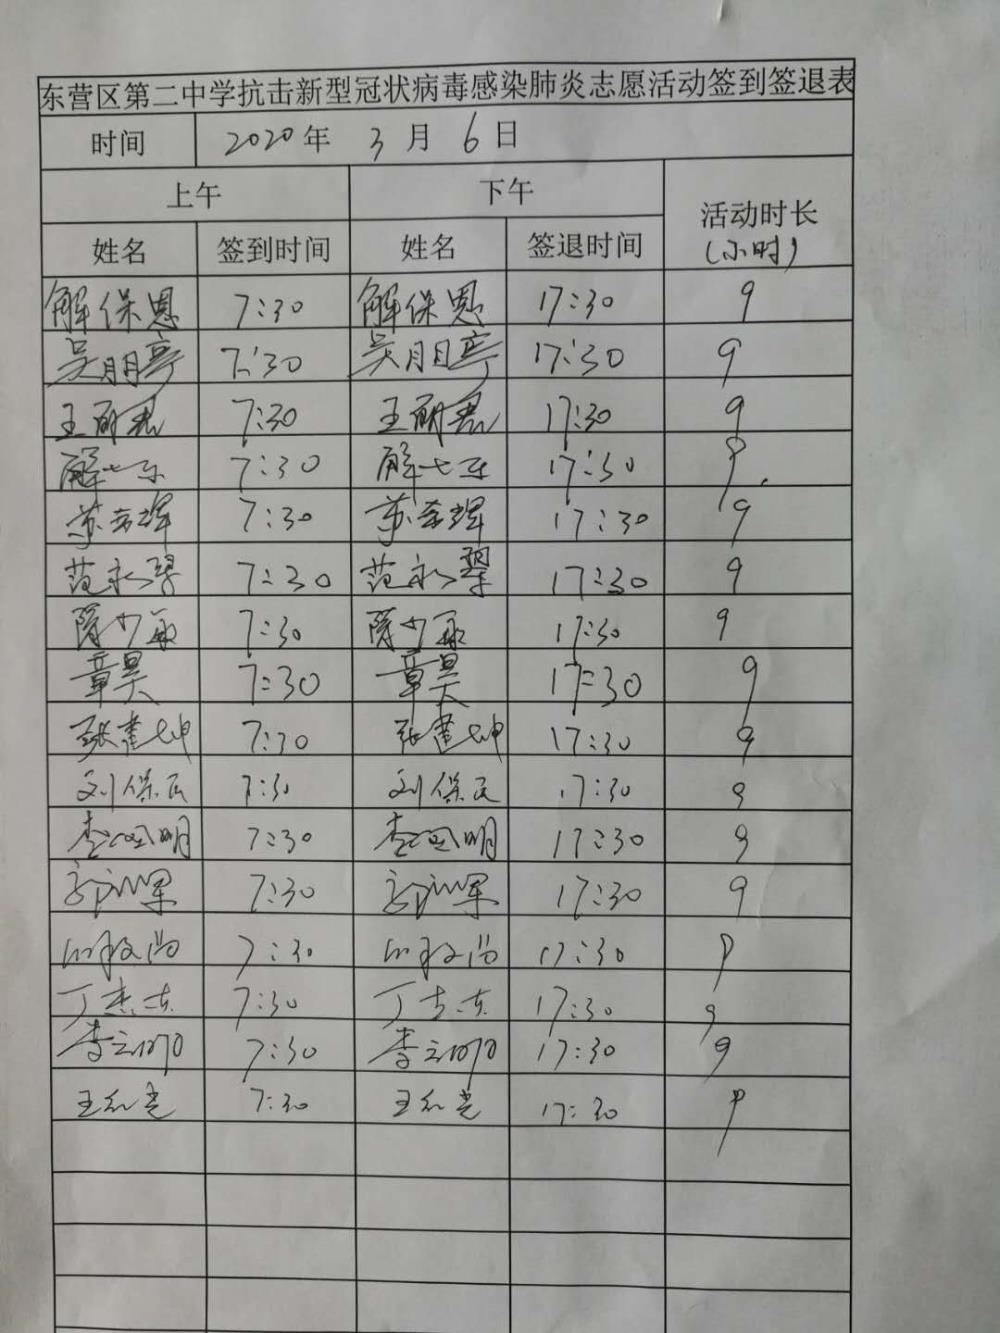 东营区第二中学抗击新型冠状病毒感染肺炎志愿活动签到签退表
时间 2020年 3月 6日
上午 下午 活动时长
(小时)
姓名 签到时间 姓名 签退时间
解保恩 7:30 解保恩 17:30 9
吴明亭 7:30 吴明亭 17:30 9
王丽君 7:30 王丽君 17:30 9
解 7:30 解 17:30 9
苏 7:30 苏 17:30 9
范永翠 7:30 范永翠 17:30 9
隋少 7:30 隋少 17:30 9
章昊 7:30 章昊 17:30 9
张建坤 7:30 张建坤 17:30 9
刘保民 7:30 刘保民 17:30 9
李 明 7:30 李 明 17:30 9
郭 军 7:30 郭 军 17:30 9
7:30 17:30 9
丁 东 7:30 丁 东 17:30 9
李 7:30 李 17:30 9
王 7:30 王 17:30 9